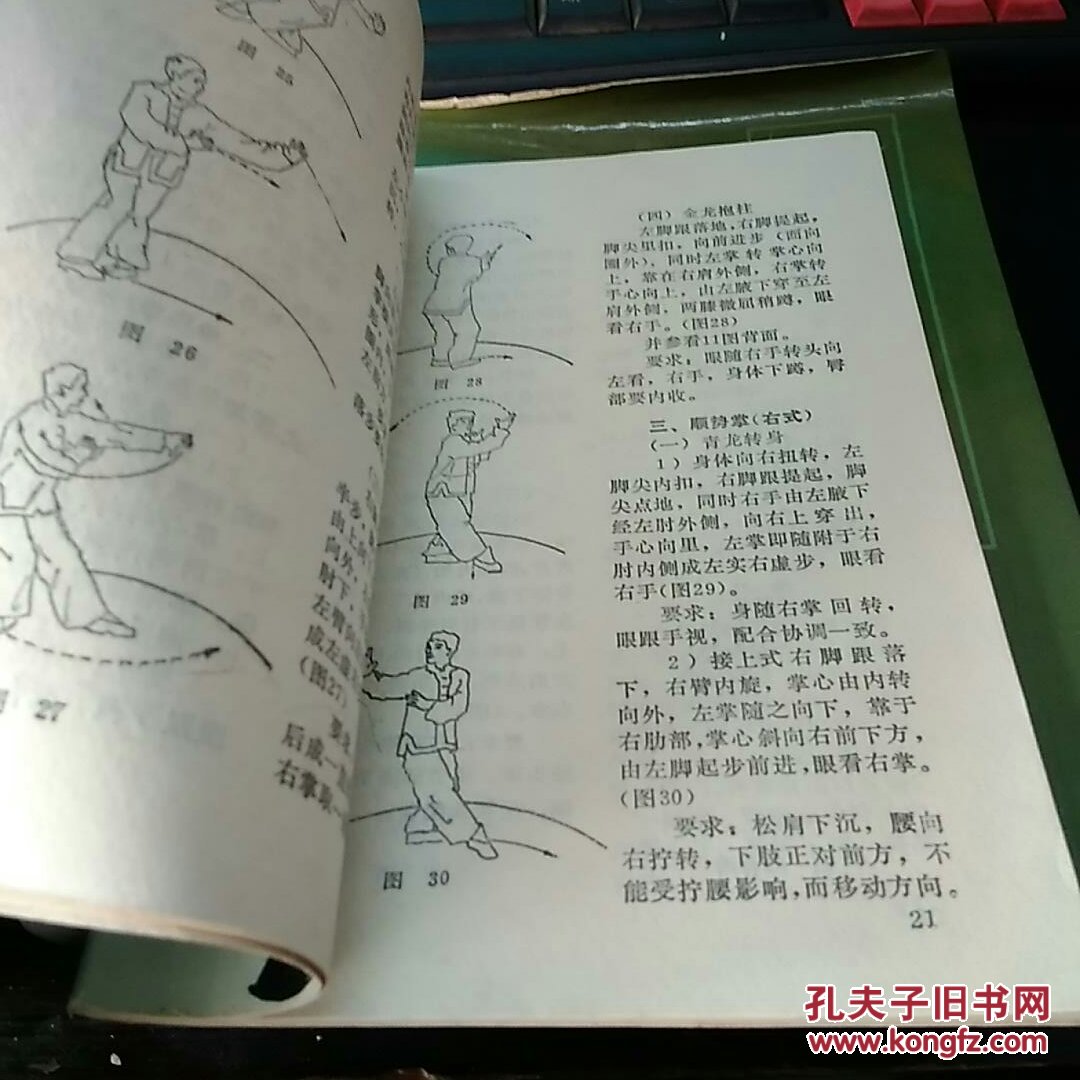 图 25
图 26
图 27
半步,
由上向
向外,
肘下,
左臂向
成左虚
(图27)
后成一
右掌取
图 28
图 29
图 30
(四)金龙抱柱
左脚跟落地,右脚提起,
脚尖里扣,向前进步(面向
圈外)、同时左掌转掌心向
上,靠在右肩外侧,右掌转
手心向上,由左腋下穿至左
肩外侧,两膝微屈稍蹲,眼
看右手。(图28)
并参看11图背面。
要求:眼随右手转头向
左看,右手,身体下蹲,臀
部要内收。
三、顺势掌(右式)
(一)青龙转身
1)身体向右扭转,左
脚尖内扣,右脚跟提起,脚
尖点地,同时右手由左腋下
经左肘外侧,向右上穿出,
手心向里,左掌即随附于右
肘内侧成左实右虚步,眼看
右手(图29)。
要求:身随右掌回转,
眼跟手视,配合协调一致。
2)接上式右脚跟落
下,右臂内旋,掌心由内转
向外,左掌随之向下,靠于
右肋部,掌心斜向右前下方,
由左脚起步前进,眼看右掌。
(图30)
要求:松肩下沉,腰向
右拧转,下肢正对前方,不
能受拧腰影响,而移动方向。
21
孔夫子旧书网
www.kongfz.com